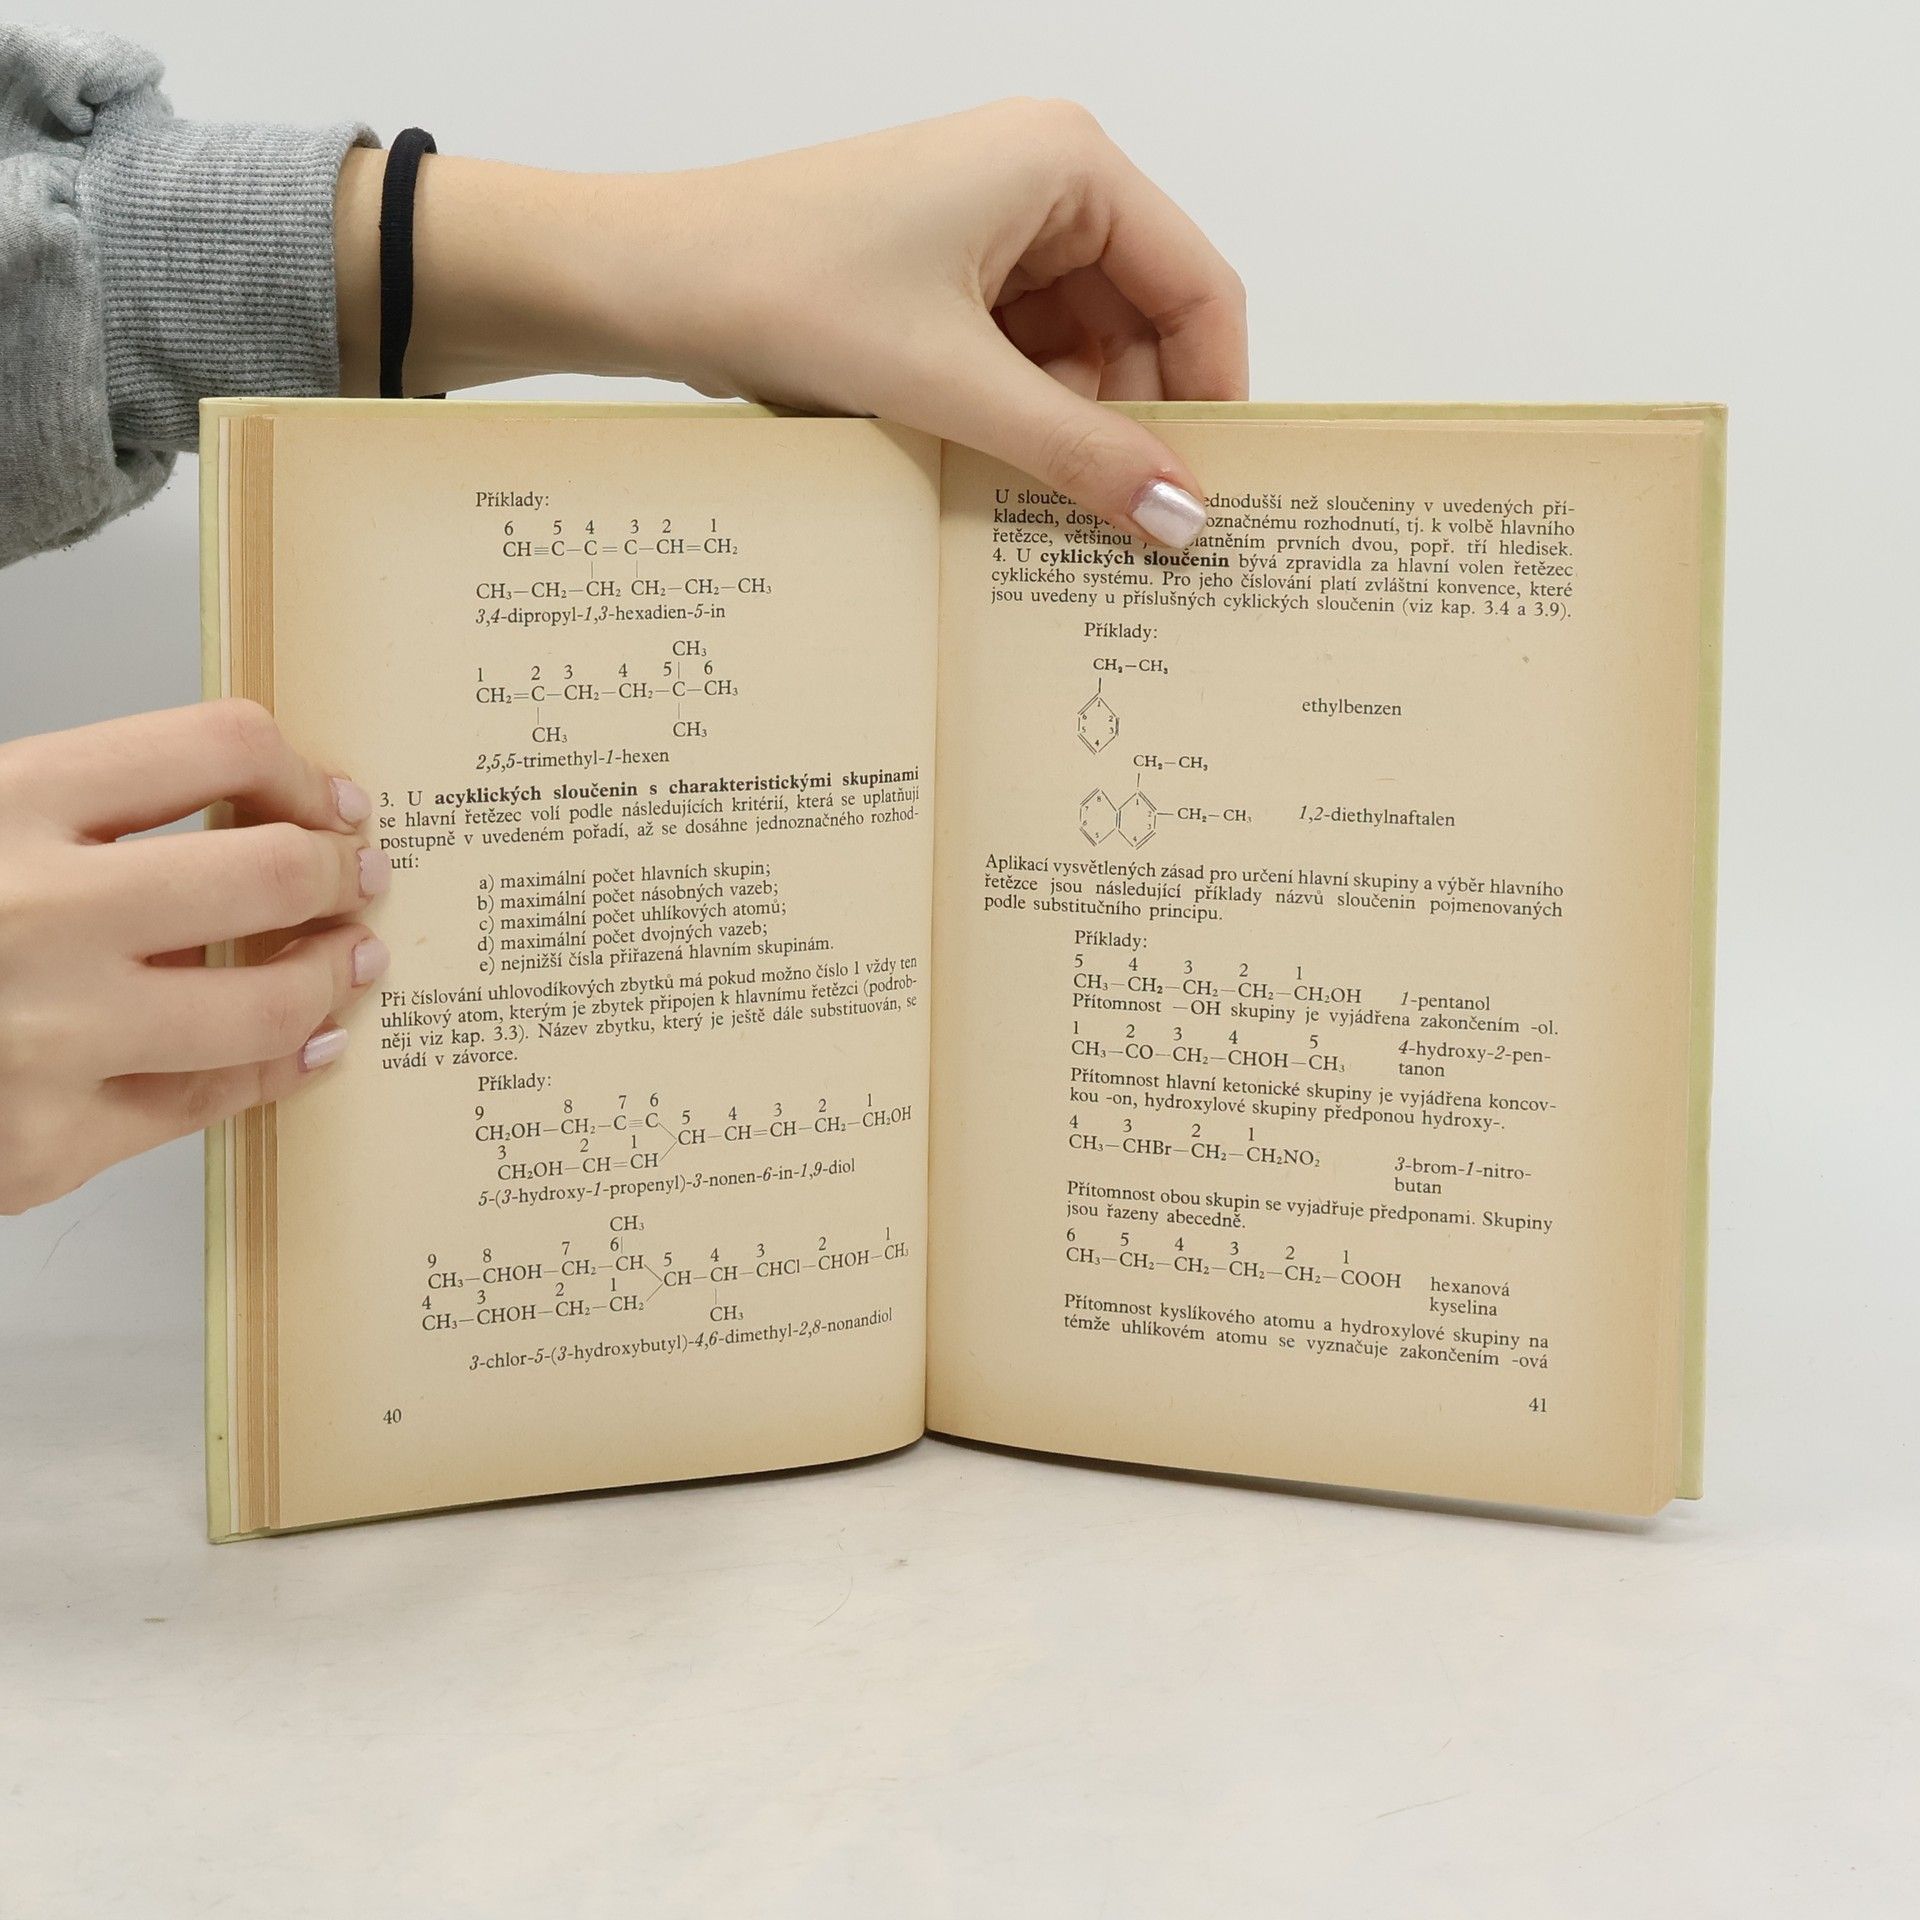 Příklady:
6 5 4 3 2 1
CH≡C—C=C—CH=CH₂
CH₃—CH₂—CH₂ CH₂—CH₂—CH₃
3,4-dipropyl-1,3-hexadien-5-in
CH₃
1 2 3 4 5| 6
CH₂=C—CH₂—CH₂—C—CH₃
CH₃ CH₃
2,5,5-trimethyl-1-hexen
3. U acyklických sloučenin s charakteristickými skupinami
se hlavní řetězec volí podle následujících kritérií, která se uplatňují
postupně v uvedeném pořadí, až se dosáhne jednoznačného rozhod-
utí:
a) maximální počet hlavních skupin;
b) maximální počet násobných vazeb;
c) maximální počet uhlíkových atomů;
d) maximální počet dvojných vazeb;
e) nejnižší čísla přiřazená hlavním skupinám.
Při číslování uhlovodíkových zbytků má pokud možno číslo 1 vždy ten
uhlíkový atom, kterým je zbytek připojen k hlavnímu řetězci (podrob-
něji viz kap. 3.3). Název zbytku, který je ještě dále substituován, se
uvádí v závorce.
Příklady:
9 8 7 6 5 4 3 2 1
CH₂OH—CH₂—C≡C CH—CH=CH—CH₂—CH₂OH
3 2 1
CH₂OH—CH=CH
5-(3-hydroxy-1-propenyl)-3-nonen-6-in-1,9-diol
CH₃
9 8 7 6| 5 4 3 2 1
CH₃—CHOH—CH₂—CH CH—CH—CHCl—CHOH—CH₃
4 3 2 1
CH₃—CHOH—CH₂—CH₂ CH₃
3-chlor-5-(3-hydroxybutyl)-4,6-dimethyl-2,8-nonandiol
40
U ednodušší než sloučeniny v uvedených pří-
kladech, označnému rozhodnutí, tj. k volbě hlavního
řetězce, většinou prvních dvou, popř. tří hledisek.
4. U cyklických sloučenin bývá zpravidla za hlavní volen řetězec
cyklického systému. Pro jeho číslování platí zvláštní konvence, které
jsou uvedeny u příslušných cyklických sloučenin (viz kap. 3.4 a 3.9).
Příklady:
CH₂—CH₃
1
6 2
5 3
4
ethylbenzen
CH₂—CH₃
8 1
7 2 —CH₂—CH₃
6 3
5 4
1,2-diethylnaftalen
Aplikací vysvětlených zásad pro určení hlavní skupiny a výběr hlavního
řetězce jsou následující příklady názvů sloučenin pojmenovaných
podle substitučního principu.
Příklady:
5 4 3 2 1
CH₃—CH₂—CH₂—CH₂—CH₂OH 1-pentanol
Přítomnost —OH skupiny je vyjádřena zakončením -ol.
1 2 3 4 5
CH₃—CO—CH₂—CHOH—CH₃ 4-hydroxy-2-pen-
tanon
Přítomnost hlavní ketonické skupiny je vyjádřena koncov-
kou -on, hydroxylové skupiny předponou hydroxy-.
4 3 2 1
CH₃—CHBr—CH₂—CH₂NO₂ 3-brom-1-nitro-
butan
Přítomnost obou skupin se vyjadřuje předponami. Skupiny
jsou řazeny abecedně.
6 5 4 3 2 1
CH₃—CH₂—CH₂—CH₂—CH₂—COOH hexanová
kyselina
Přítomnost kyslíkového atomu a hydroxylové skupiny na
témže uhlíkovém atomu se vyznačuje zakončením -ová
41